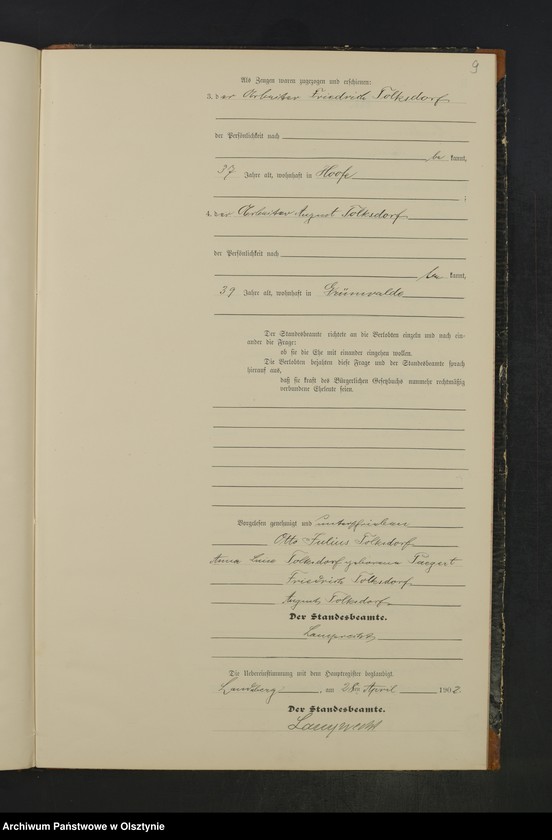 9
Als Zeugen waren zugezogen und erschienen:
3. der Arbeiter Friedrich Tolksdorf
der Persönlichkeit nach
be kannt,
37 Jahre alt, wohnhaft in Hoofe
;
4. der Arbeiter August Tolksdorf
der Persönlichkeit nach
be kannt,
39 Jahre alt, wohnhaft in Grünwalde
Der Standesbeamte richtete an die Verlobten einzeln und nach ein-
ander die Frage:
ob sie die Ehe mit einander eingehen wollen.
Die Verlobten bejahten diese Frage und der Standesbeamte sprach
hierauf aus,
daß sie kraft des Bürgerlichen Gesetzbuchs nunmehr rechtmäßig
verbundene Eheleute seien.
Vorgelesen, genehmigt und unterschrieben
Otto Julius Tolksdorf
Anna Tolksdorf geborene Taegert
Friedrich Tolksdorf
August Tolksdorf
Der Standesbeamte.
Lamprecht
Die Uebereinstimmung mit dem Hauptregister beglaubigt
Landsberg, am 28 April 1902
Der Standesbeamte.
Lamprecht
Archiwum Państwowe w Olsztynie